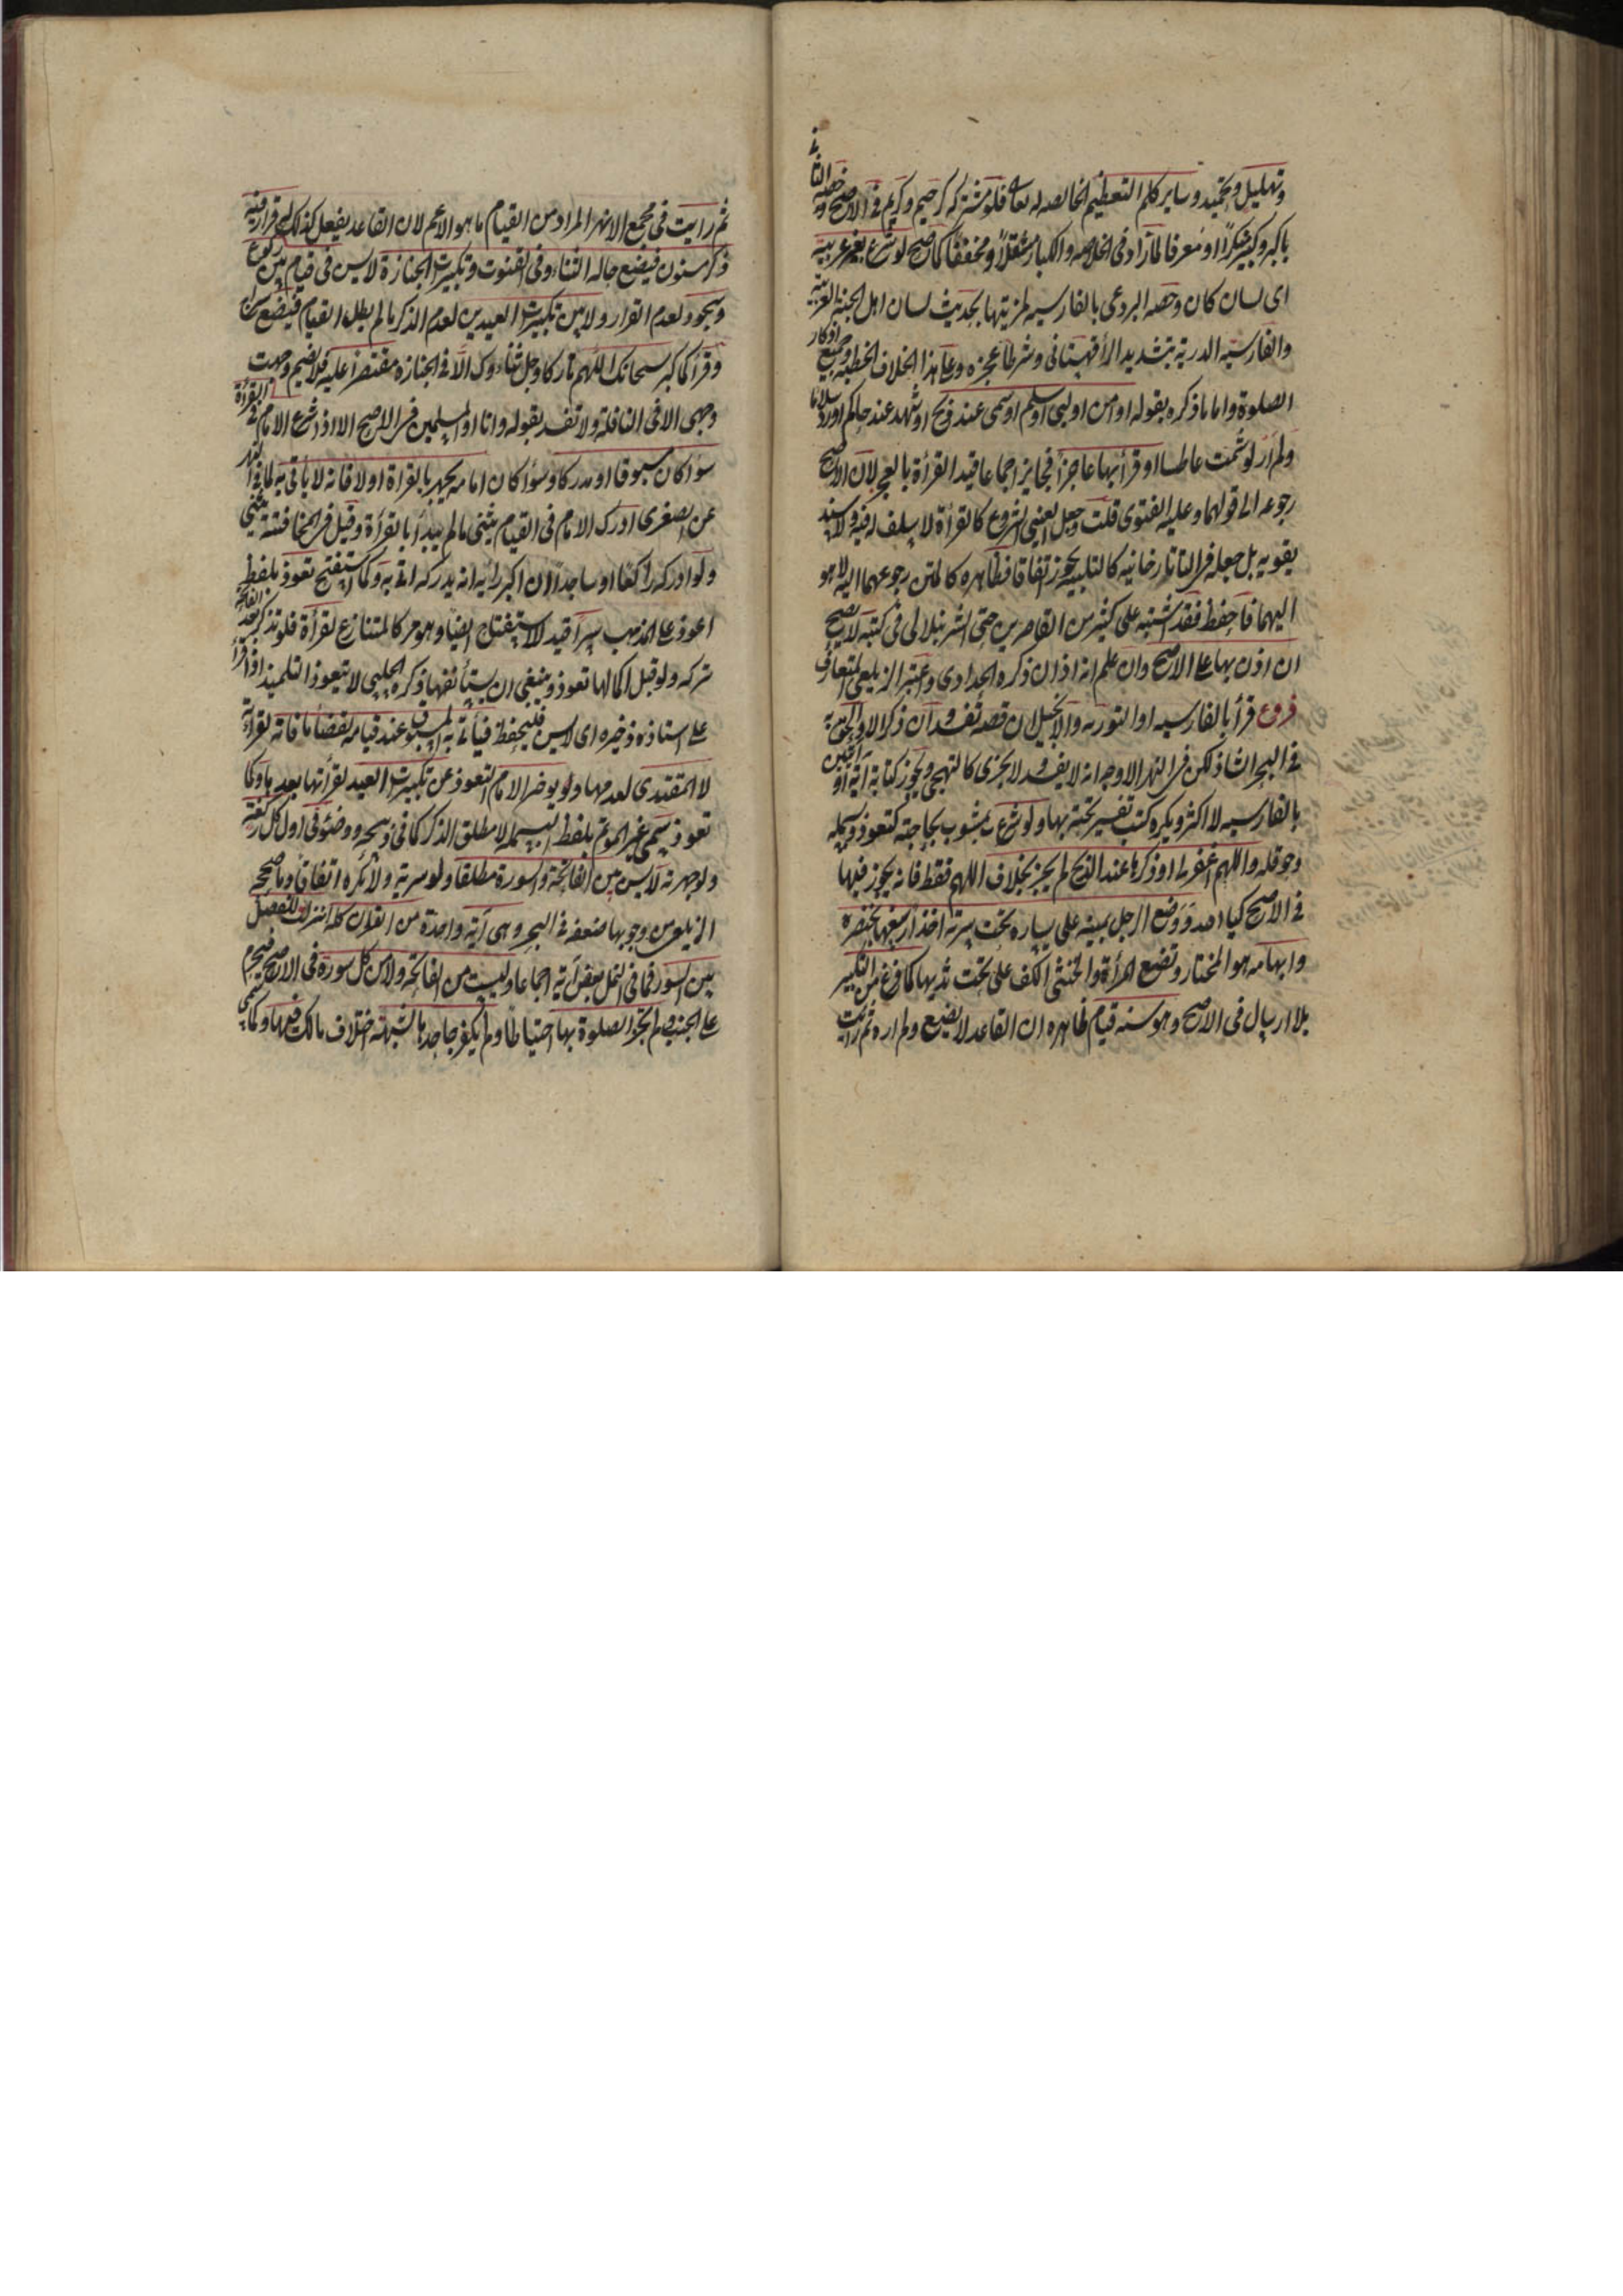 وتهليل وتحميد وساير كلم التعظيم الخالصه له تعا فلو مشتركه كرحيم وكريم في الاصح وخصه الثاني
باكبر وكبير منكرًا او معرفا لما زاد في الخلاصه والكبار مثقلًا ومخففًا كما صح لو شرع بغير عربية
اى لسان كان وخصه البردعى بالفارسيه لمزيتها بحديث لسان اهل الجنة العربية
والفارسيه الدرية بتشديد الرأ قهستانى وشرطا عجزه وعلى هذا الخلاف الخطبه وجميع اذكار
الصلوة واما ما ذكره بقوله او من او لبى او سلم او سمى عند ذبح او شهد عند حاكم او رد سلاما
ولم ار لو شمت عاطسا او قرأ بها عاجزًا فجايز اجماعا قيد القرأة بالعجز لان الاصح
رجوعه الى قولهما وعليه الفتوى قلت وجعل العينى الشروع كالقرأة لا سلف له فيه ولا سند
يقويه بل جعله في التاتارخانيه كالتلبيه يجوز اتفاقا فظاهره كالمتن رجوعهما اليه لا هو
اليهما فاحفظ فقد اشتبه على كثير من القاصرين حتى الشرنبلالى في كتبه لا يصح
ان اذن بها على الاصح وان علم انه اذان ذكره الحدادى واعتبر الزيلعى المتعارف
فروع قرأ بالفارسيه او التورىه والانجيل ان قصه تفسد وان ذكرا لا والحق به
في البحر الشاذ لكن في النهر الاوجه انه لا يفسد ولا يجزى كالتهجى ويجوز كتابة آية او آيتين
بالفارسيه لا اكثر ويكره كتب تفسير تحته بها ولو شرع بمشوب بحاجته كتعوذ وبسمله
وحوقله واللهم اغفر لى او ذكرها عند الذبح لم يجز بخلاف اللهم فقط فانه يجوز فيهما
في الاصح كيا الله ووضع الرجل يمينه على يساره تحت سرته اخذا رسغها بخنصره
وابهامه هو المختار وتضع المرأة والخنثى الكف على تحت ثديها كما فرغ من التكبير
بلا ارسال في الاصح وهو سنه قيام ظاهره ان القاعد لا يضع ولم اره ثم رايت
ثم رايت في مجمع الانهر المراد من القيام ما هو الاعم لان القاعد يفعل كذلك له قرار فيه
ذكر مسنون فيضع حاله الثناء وفي القنوت وتكبيرات الجنازة لا يسن في قيام بين ركوع
وسجود لعدم القرار ولا بين تكبيرات العيدين لعدم الذكر ما لم يطل القيام فيضع
وقرأ كما كبر سبحانك اللهم تاركا وجل ثناءوك الا في الجنازه مقتصرا عليه فلا يضم وجهت
وجهى الا في النافلة ولا تفسد بقوله وانا اول المسلمين في الاصح الا اذا شرع الامام في القرأة
سوا كان مسبوقا او مدركا وسوا كان امامه يجهر بالقراة اولا فانه لا يأتى به لما في النهر
عن الصغرى ادرك الامام في القيام يثنى ما لم يبدأ بالقرأة وقيل في المخافتة يثنى
ولو ادركه راكعًا او ساجدًا ان اكبر رايه انه يدركه اتى به وكما استفتح تعوذ بلفظ
اعوذ على المذهب سرا قيد للاستفتاح ايضا وهو كالمتنازع لقرأة فلو تذكره بعد الفاتحة
تركه ولو قبل اكمالها تعوذ وينبغى ان يستأنفها ذكره الحلبى لا يتعوذ التلميذ اذا قرأ
على استاذه ذخيره اى لا يسن فليحفظ فيأتى به المسبوق عند قيامه لقضأ ما فاته لقراءته
لا المقتدى لعدمها ولو يوخر الامام التعوذ عن تكبيرات العيد لقرأتها بعدها وكما
تعوذ سمى غير الموتم بلفظ البسمله لا مطلق الذكر كما في ذبيحه ووضوء في اول كل ركعة
ولو جهرته لا يسن بين الفاتحة والسورة مطلقا ولو سرية ولا تكره اتفاقا وما صححه
الزيلعى من وجوبها ضعفه في البحر وهى آية واحدة من القران كله انزلت للفصل
بين السور فما في النمل بعض آية اجماعا وليست من الفاتحة ولا من كل سورة في الاصح فتحرم
على الجنب ولم تجز الصلوة بها احتياطا ولم يكفر جاحدها لشبهة اختلاف مالك فيها وكما سمى